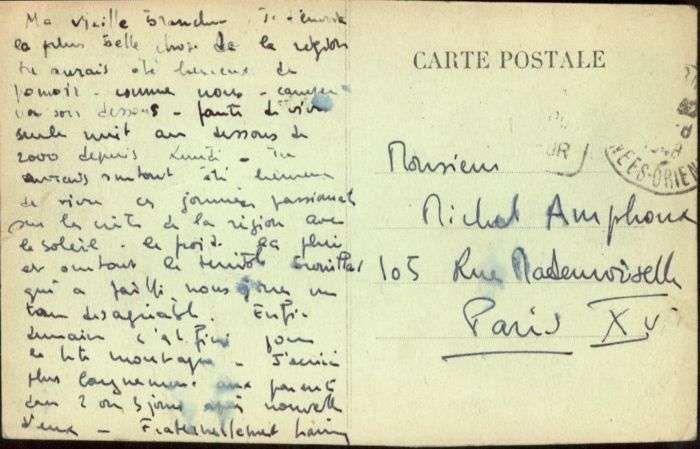 Ma vieille branche Je t'envoie
la plus belle chose de la région
tu aurais été heureux de
pouvoir - comme nous - camper
dessous - pas de vivre
seule nuit au dessous de
2000 depuis lundi - Tu
aurais surtout été heureux
de vivre ces journées
sur les crêtes de la région avec
le soleil - le froid la pluie
et surtout le terrible brouillard
qui a failli nous jouer un
tour désagréable. Enfin
demain c'est fini pour
la montagne - J'écrirai
plus longuement aux parents
dans 2 ou 3 jours après nouvelle
d'eux - Fraternellement
CARTE POSTALE
Monsieur
Michel Amphoux
105 Rue Mademoiselle
Paris XVe